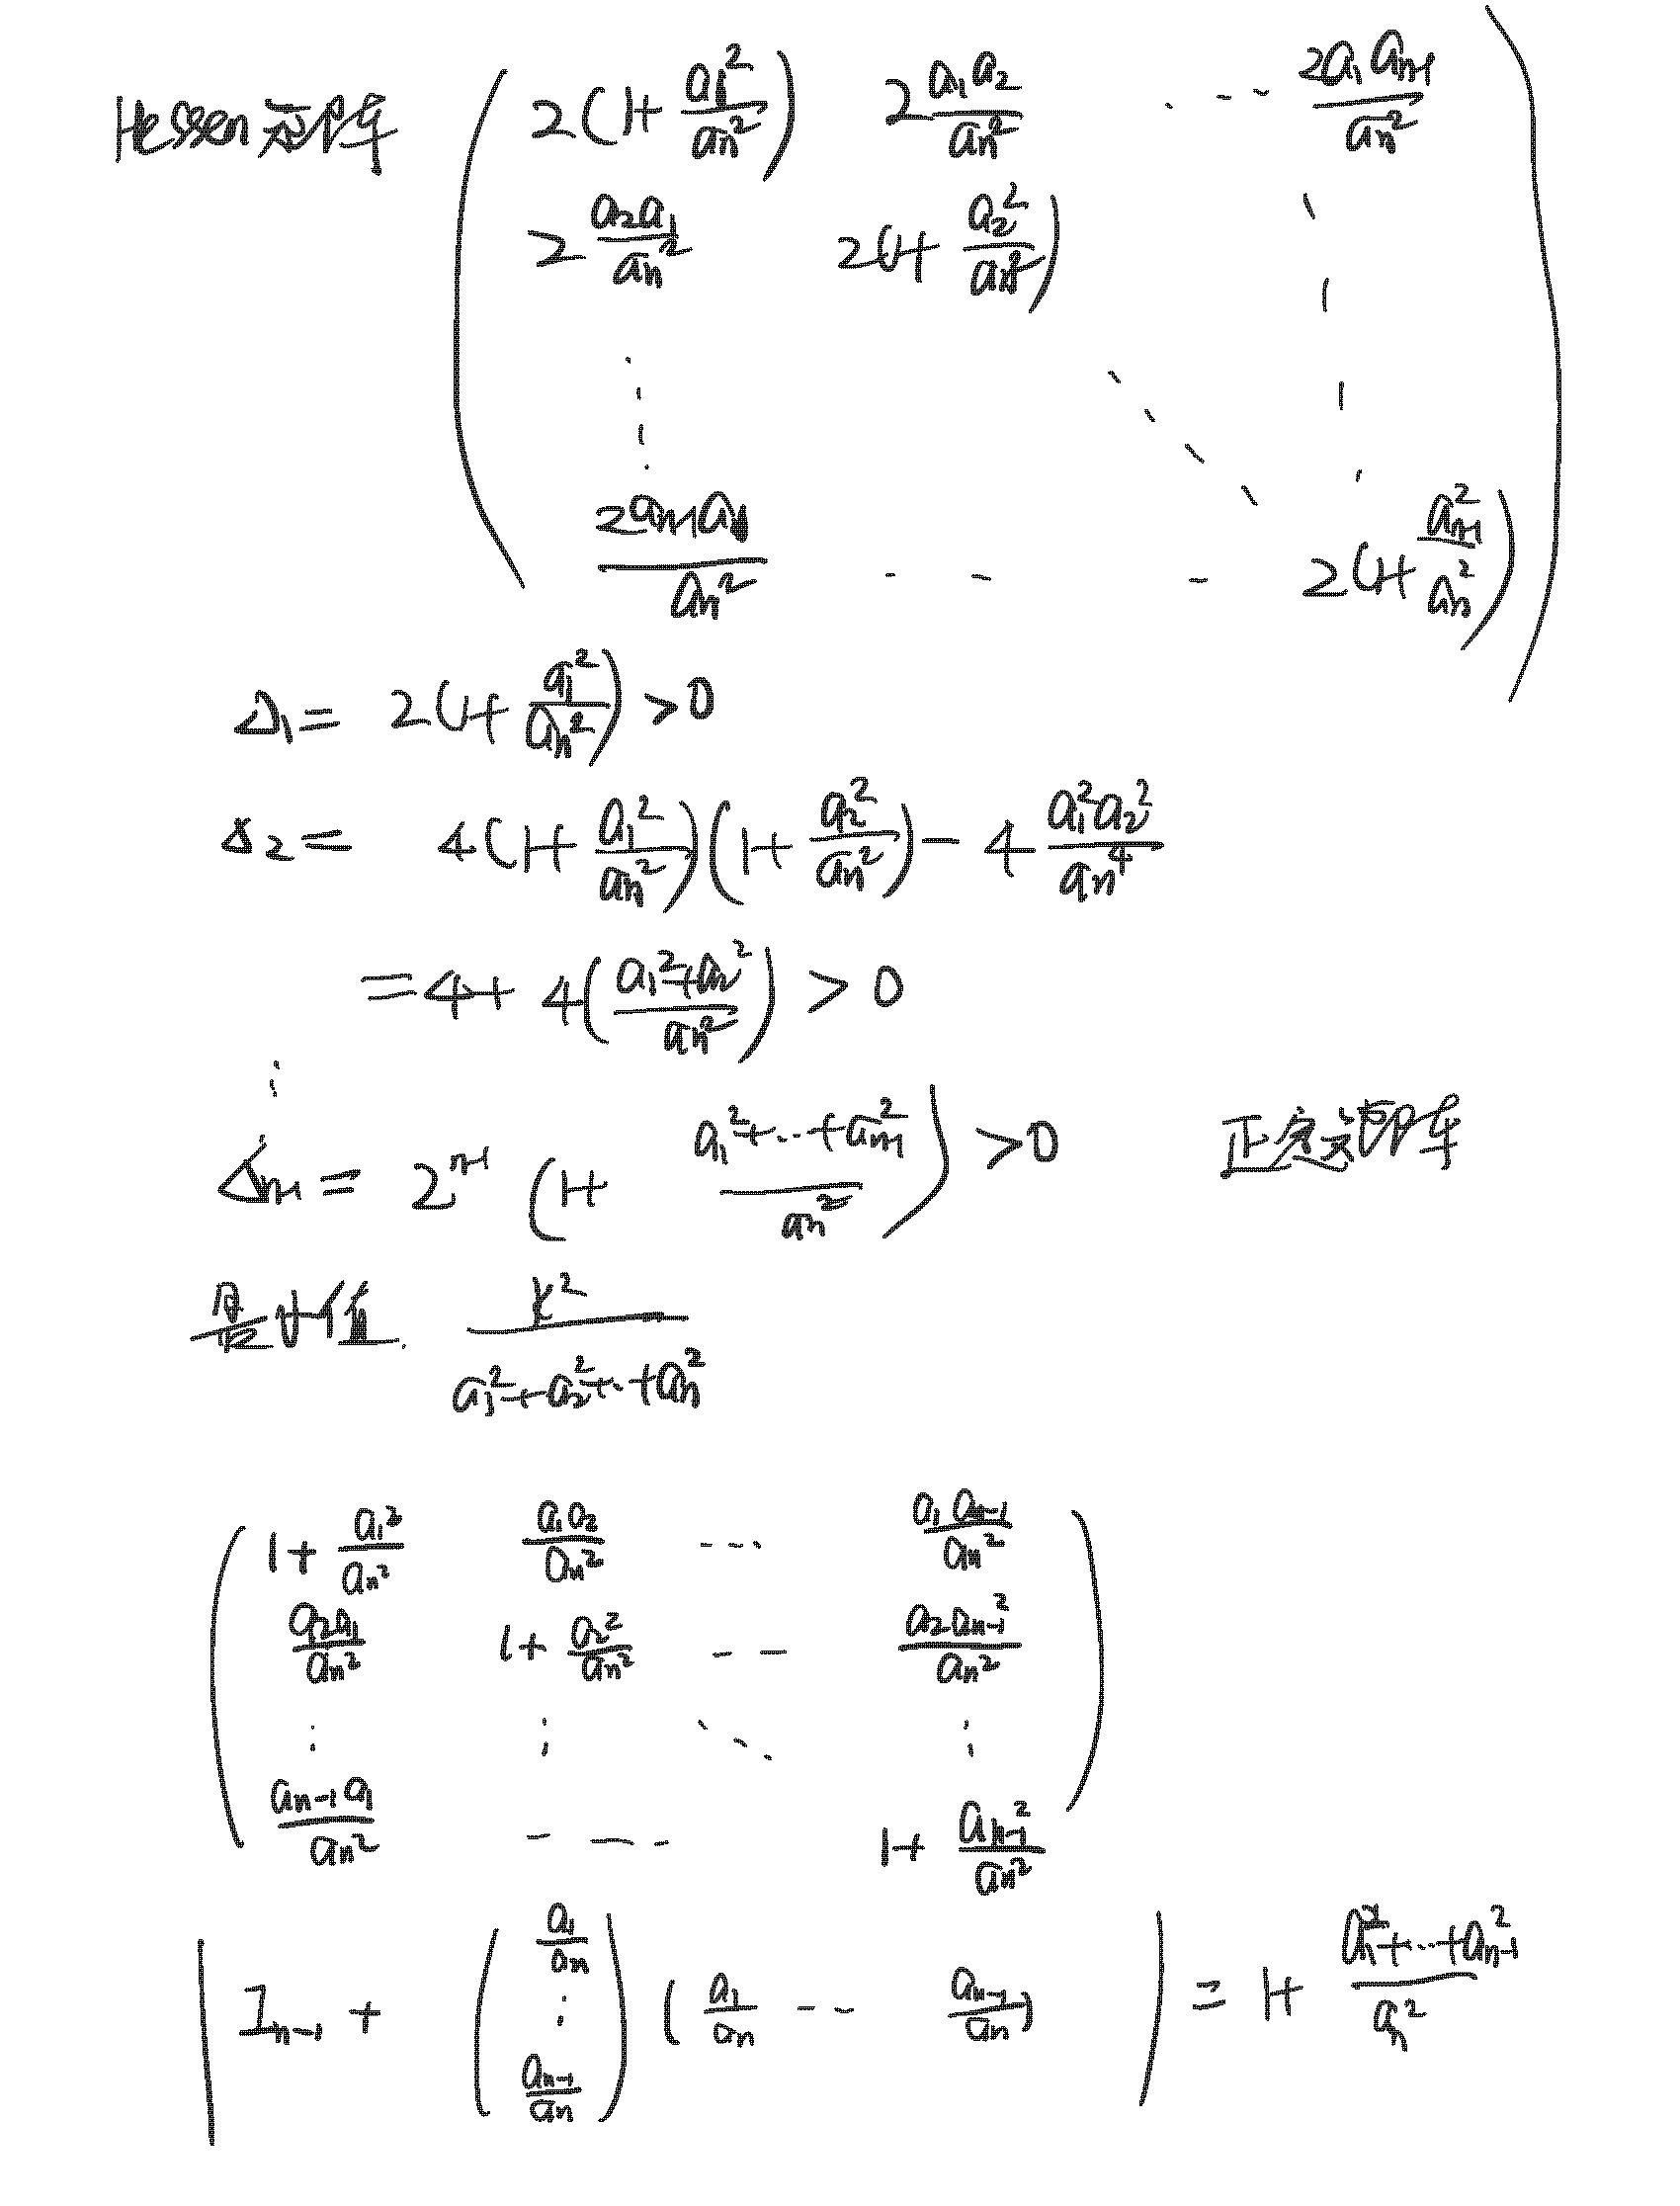 Hessen矩阵 ( 2(1+a₁²/aₙ²) 2a₁a₂/aₙ² ... 2a₁aₙ₋₁/aₙ²
2a₂a₁/aₙ² 2(1+a₂²/aₙ²)
2aₙ₋₁a₁/aₙ² ... 2(1+aₙ₋₁²/aₙ²) )
Δ₁ = 2(1+a₁²/aₙ²) > 0
Δ₂ = 4(1+a₁²/aₙ²)(1+a₂²/aₙ²) - 4a₁²a₂²/aₙ⁴
= 4+4((a₁²+a₂²)/aₙ²) > 0
⋮
Δₙ₋₁ = 2ⁿ⁻¹(1+(a₁²+...+aₙ₋₁²)/aₙ²) > 0 正定矩阵
最小值 k²/(a₁²+a₂²+...+aₙ²)
( 1+a₁²/aₙ² a₁a₂/aₙ² ... a₁aₙ₋₁/aₙ²
a₂a₁/aₙ² 1+a₂²/aₙ² ... a₂aₙ₋₁²/aₙ²
⋮ ⋮ ⋱ ⋮
aₙ₋₁a₁/aₙ² ... 1+aₙ₋₁²/aₙ² )
| Iₙ₋₁ + (a₁/aₙ ⋮ aₙ₋₁/aₙ) (a₁/aₙ ... aₙ₋₁/aₙ) | = 1+(a₁²+...+aₙ₋₁²)/aₙ²